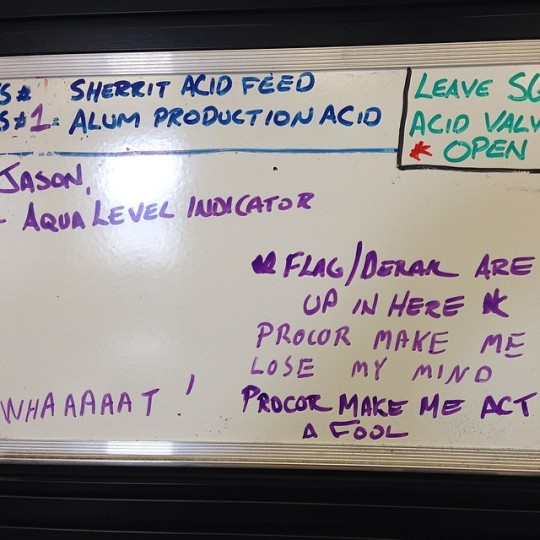 S# SHERRIT ACID FEED
S#1= ALUM PRODUCTION ACID
LEAVE
ACID
* OPEN
JASON,
- AQUA LEVEL INDICATOR
* FLAG/DERAIL ARE
UP IN HERE *
PROCOR MAKE ME
LOSE MY MIND
WHAAAAAT!
PROCOR MAKE ME ACT
A FOOL